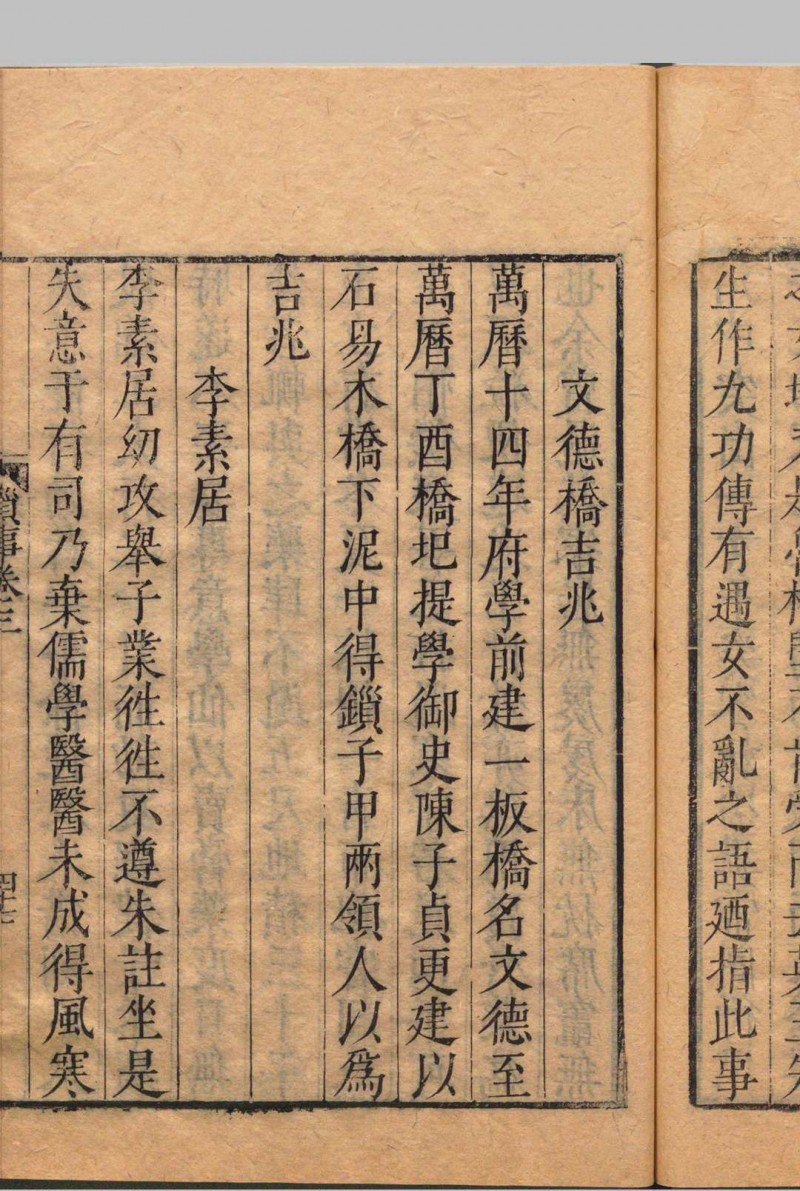 生作九功傳有遇女不亂之語廼指此事
文德橋吉兆
萬曆十四年府學前建一板橋名文德至
萬曆丁酉橋圯提學御史陳子貞更建以
石易木橋下泥中得鎖子甲兩領人以爲
吉兆
李素居
李素居幼攻舉子業徃徃不遵朱註坐是
失意于有司乃棄儒學醫醫未成得風寒
瑣事卷三